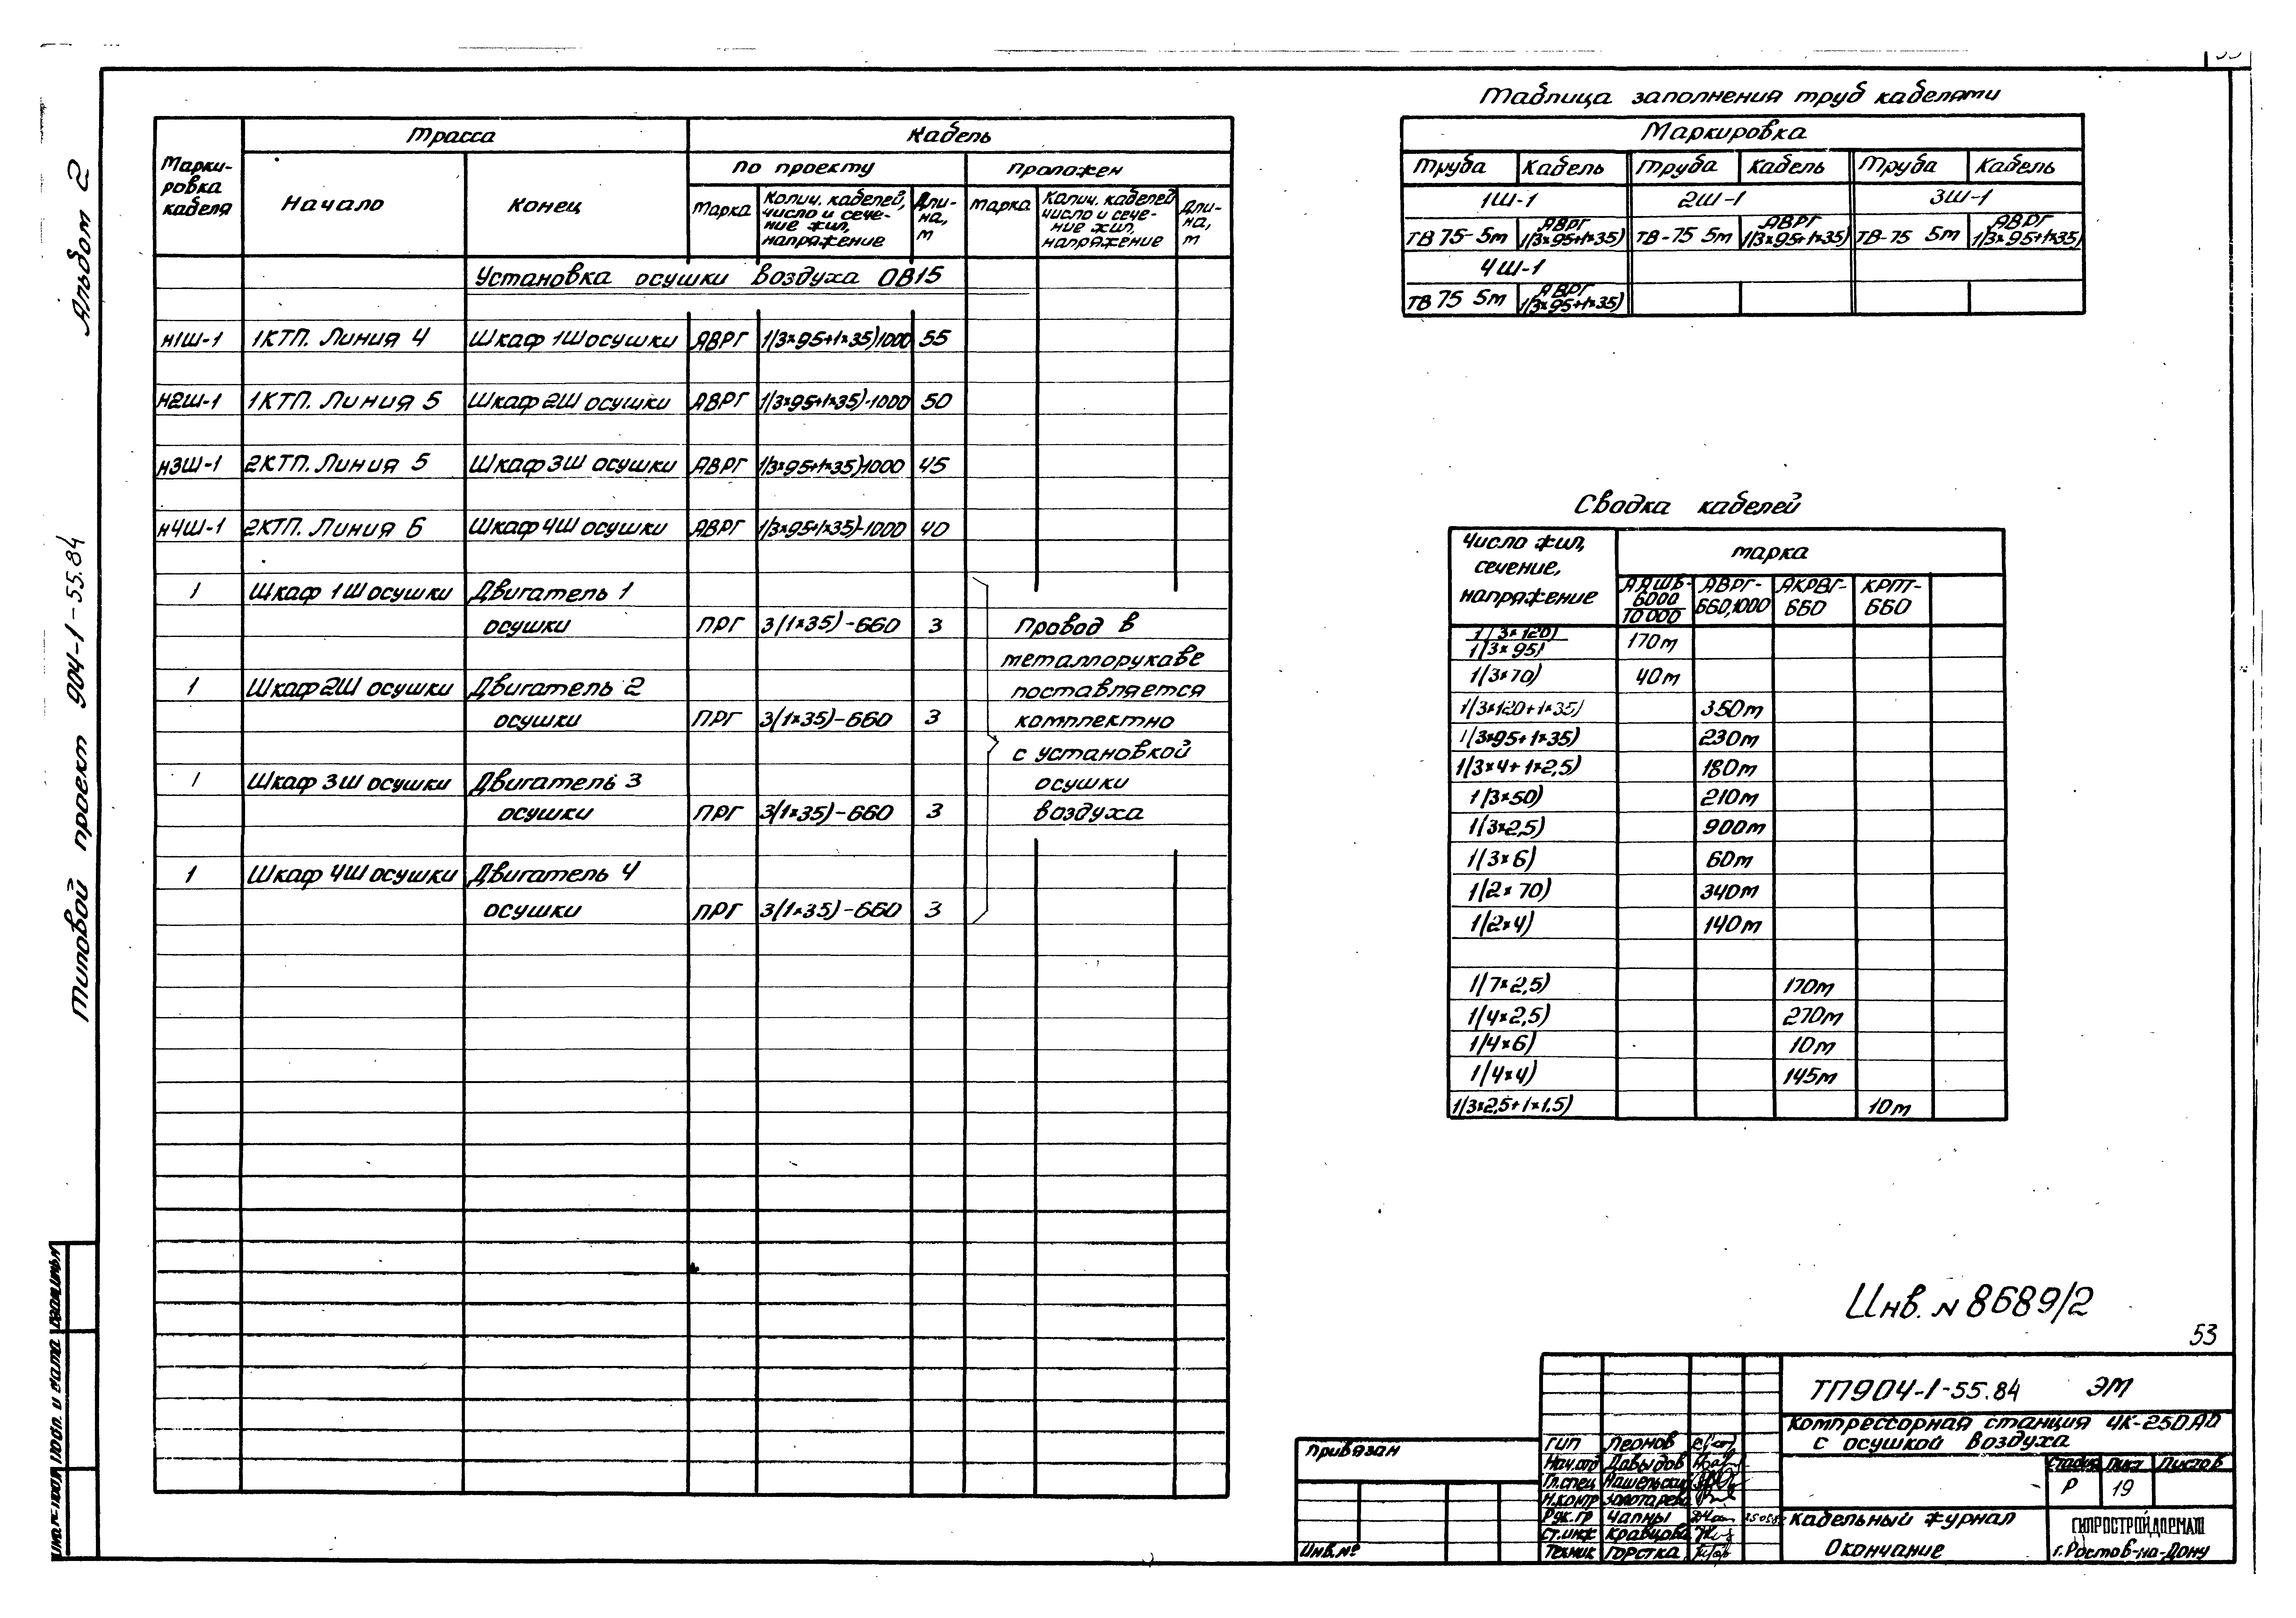 Альбом 2
Типовой проект 904-1-55.84
Марки-
ровка
кабеля
Трасса
Кабель
Начало
Конец
По проекту
Проложен
Марка
Колич. кабелей,
число и сече-
ние жил,
напряжение
Дли-
на,
м
Марка
Колич. кабелей
число и сече-
ние жил,
напряжение
Дли-
на,
м
Установка осушки воздуха ОВ15
Н1Ш-1 1КТП. Линия 4 Шкаф 1Ш осушки АВРГ 1(3×95+1×35)1000 55
Н2Ш-1 1КТП. Линия 5 Шкаф 2Ш осушки АВРГ 1(3×95+1×35)-1000 50
Н3Ш-1 2КТП. Линия 5 Шкаф 3Ш осушки АВРГ 1(3×95+1×35)1000 45
Н4Ш-1 2КТП. Линия 6 Шкаф 4Ш осушки АВРГ 1(3×95+1×35)-1000 40
1 Шкаф 1Ш осушки Двигатель 1
осушки ПРГ 3(1×35)-660 3
1 Шкаф 2Ш осушки Двигатель 2
осушки ПРГ 3(1×35)-660 3
1 Шкаф 3Ш осушки Двигатель 3
осушки ПРГ 3(1×35)-660 3
1 Шкаф 4Ш осушки Двигатель 4
осушки ПРГ 3(1×35)-660 3
Провод в
металлорукаве
поставляется
комплектно
с установкой
осушки
воздуха
Таблица заполнения труб кабелями
Маркировка
Труба Кабель Труба Кабель Труба Кабель
1Ш-1 2Ш-1 3Ш-1
АВРГ АВРГ АВРГ
ТВ 75- 5м 1(3×95+1×35) ТВ-75 5м 1(3×95+1×35) ТВ-75 5м 1(3×95+1×35)
4Ш-1
АВРГ
ТВ 75 5м 1(3×95+1×35)
Сводка кабелей
Число жил,
сечение,
напряжение
марка
ААШВ-
6000
10000
АВРГ-
660,1000
АКРВГ-
660
КРПТ-
660
1(3×120)
1(3×95) 170м
1(3×70) 40м
1(3×120+1×35) 350м
1(3×95+1×35) 230м
1(3×4+1×2,5) 180м
1(3×50) 210м
1(3×2,5) 900м
1(3×6) 60м
1(2×70) 340м
1(2×4) 140м
1(7×2,5) 170м
1(4×2,5) 270м
1(4×6) 10м
1(4×4) 145м
1(3×2,5+1×1,5) 10м
Инв. N 8689/2
53
ТП904-1-55.84 ЭМ
Компрессорная станция 4К-250АО
с осушкой воздуха
Стадия Лист Листов
Р 19
Кабельный журнал
Окончание
ГИПРОСТРОЙДОРМАШ
г. Ростов-на-Дону
Привязан
Инв.№
ГИП Леонов
Нач.отд Давыдов
Гл.спец
Н.контр Золотарева
Рук.гр Чапны
Ст.инж Кравцова
Техник Горстка